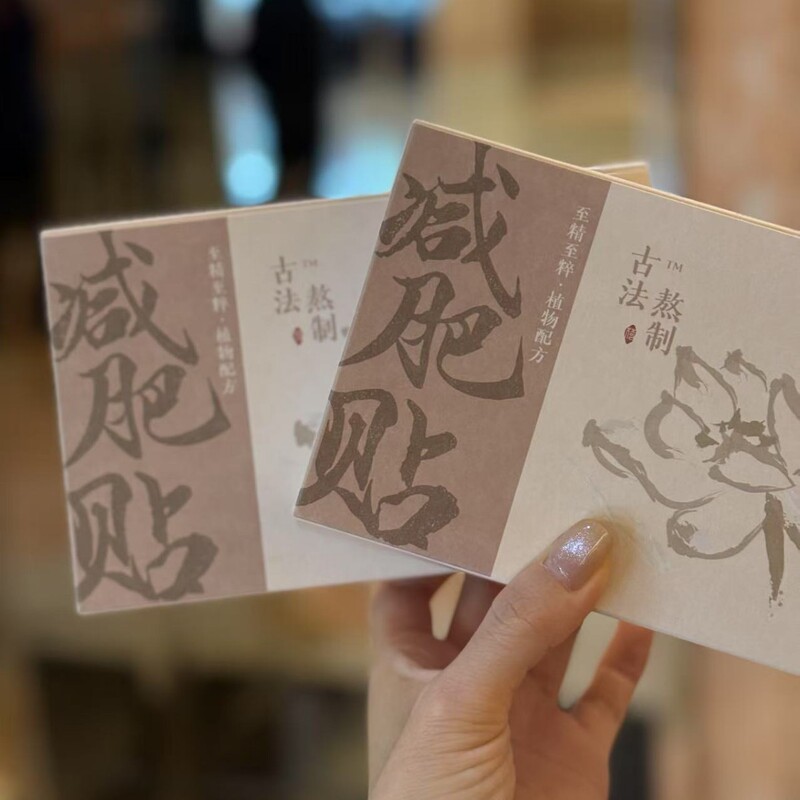 减肥贴
至精至粹·植物配方
古法
熬制
TM
减肥贴
至精至粹·植物配方
古法
熬制
TM